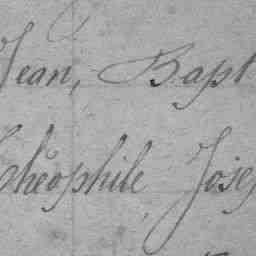 Jean, Bapt
Théophile, Josep